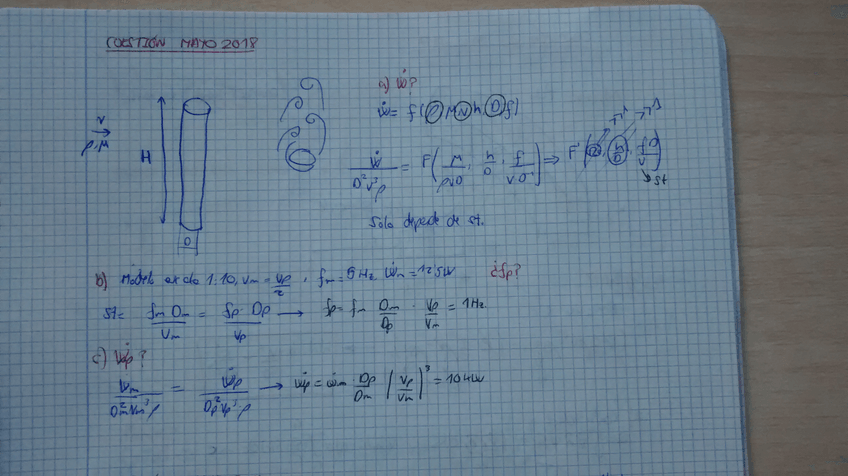 CUESTION MAYO 2018
a) Ẇ?
Ẇ = f(ρ μ v h D f)
v
ρ, μ
H
D
Ẇ / D² v³ ρ = F(μ/ρvD, h/D, f/vD⁻¹) ⇒ F(Re, h/D, fD/v)
St
Solo depende de St.
b) Modelo escala 1:10, vm = vp/2, fm = 5 Hz, Ẇm = 12,5W ¿fp?
St = fm Dm / vm = fp · Dp / vp → fp = fm Dm/Dp · vp/vm = 1Hz
c) Ẇp?
Ẇm / Dm² vm³ ρ = Ẇp / Dp² vp³ ρ → Ẇp = Ẇm · Dp/Dm (vp/vm)³ = 10 kW